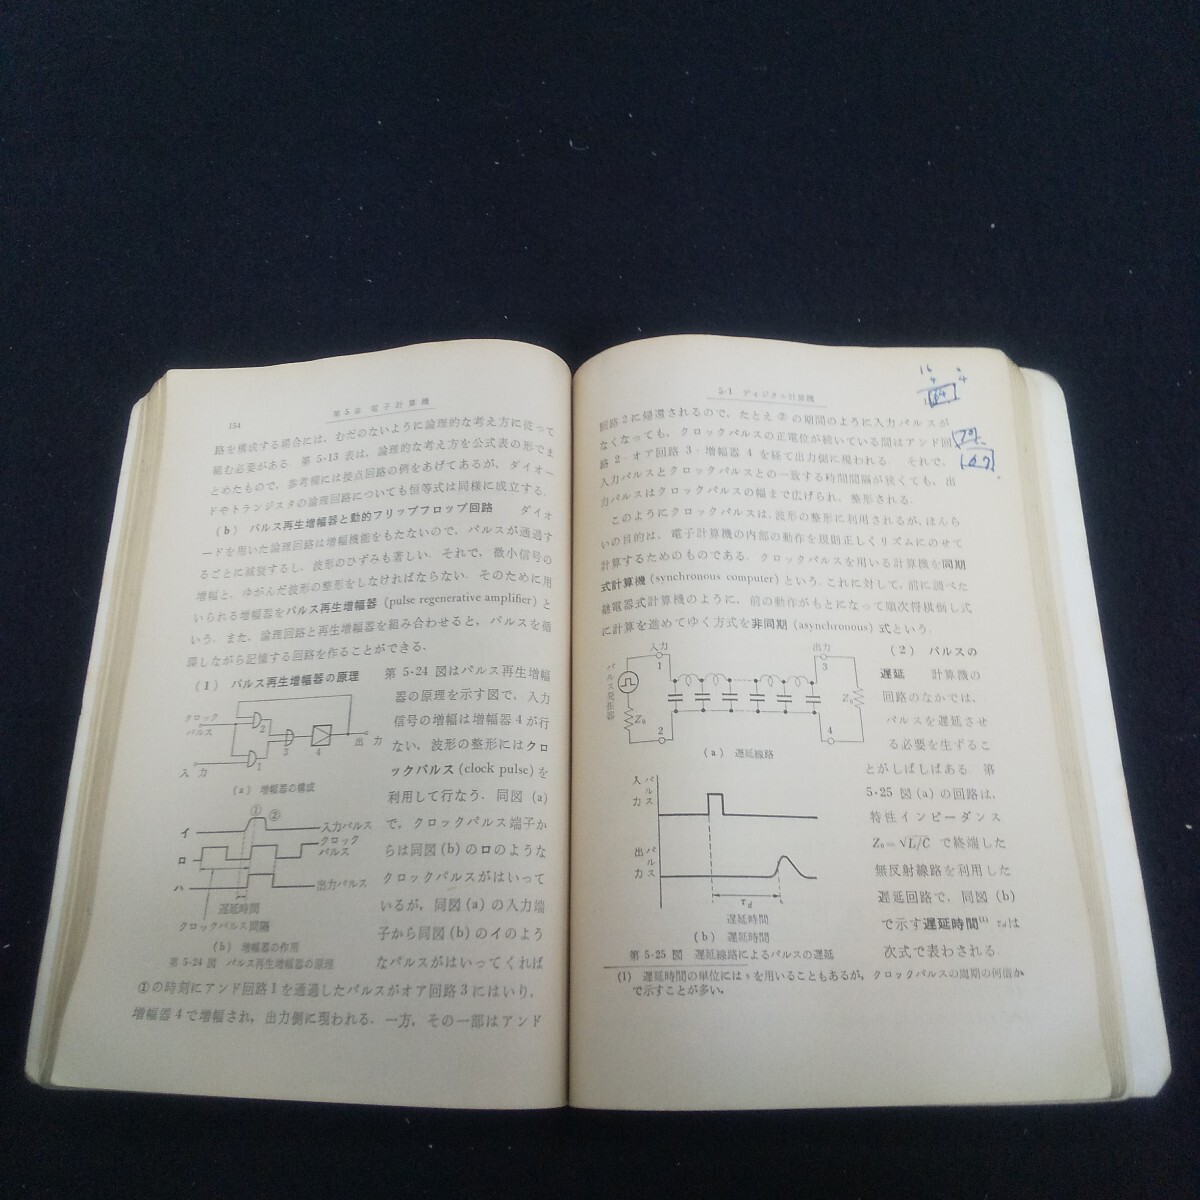 154
第5章 電子計算機
路を構成する場合には、むだのないように論理的な考え方に従って
組む必要がある. 第5・13表は, 論理的な考え方を公式表の形でま
とめたもので, 参考欄には接点回路の例をあげてあるが, ダイオー
ドやトランジスタの論理回路についても恒等式は同様に成立する.
(b) パルス再生増幅器と動的フリップフロップ回路 ダイオ
ードを用いた論理回路は増幅機能をもたないので, パルスが通過す
るごとに減衰するし, 波形のひずみも著しい. それで, 微小信号の
増幅と, ゆがんだ波形の整形をしなければならない. そのために用
いられる増幅器をパルス再生増幅器 (pulse regenerative amplifier) と
いう. また, 論理回路と再生増幅器を組み合わせると, パルスを循
環しながら記憶する回路を作ることができる.
(1) パルス再生増幅器の原理
第5・24図はパルス再生増幅
器の原理を示す図で, 入力
信号の増幅は増幅器4が行
ない, 波形の整形にはクロ
ックパルス (clock pulse) を
利用して行なう. 同図 (a)
で, クロックパルス端子か
らは同図 (b) のロのような
クロックパルスがはいって
いるが, 同図 (a) の入力端
子から同図 (b) のイのよう
なパルスがはいってくれば
クロック
パルス
2
3
4
出力
入力
1
(a) 増幅器の構成
① ②
イ
入力パルス
ロ
クロック
パルス
ハ
出力パルス
遅延時間
クロックパルス間隔
(b) 増幅器の作用
第5・24図 パルス再生増幅器の原理
①の時刻にアンド回路1を通過したパルスがオア回路3にはいり,
増幅器4で増幅され, 出力側に現われる. 一方, その一部はアンド
5・1 ディジタル計算機
16
4
4
64
回路2に帰還されるので, たとえ②の期間のように入力パルスが
なくなっても, クロックパルスの正電位が続いている間はアンド回
路2・オア回路3・増幅器4を経て出力側に現われる. それで,
入力パルスとクロックパルスとの一致する時間間隔が狭くても, 出
力パルスはクロックパルスの幅まで広げられ, 整形される.
このようにクロックパルスは, 波形の整形に利用されるが, ほんら
いの目的は, 電子計算機の内部の動作を規則正しくリズムにのせて
計算するためのものである. クロックパルスを用いる計算機を同期
式計算機 (synchronous computer) という. これに対して, 前に調べた
継電器式計算機のように, 前の動作がもとになって順次将棋倒し式
に計算を進めてゆく方式を非同期 (asynchronous) 式という.
入力
1
出力
3
パルス発振器
Z₀
Z₀
2
4
(a) 遅延線路
入力パルス
出力パルス
τd
遅延時間
(b) 遅延時間
第5・25図 遅延線路によるパルスの遅延
(2) パルスの
遅延 計算機の
回路のなかでは,
パルスを遅延させ
る必要を生ずるこ
とがしばしばある. 第
5・25図 (a) の回路は,
特性インピーダンス
Z₀=√L/C で終端した
無反射線路を利用した
遅延回路で, 同図 (b)
で示す遅延時間(1) τdは
次式で表わされる.
(1) 遅延時間の単位にはsを用いることもあるが, クロックパルスの周期の何倍か
で示すことが多い.